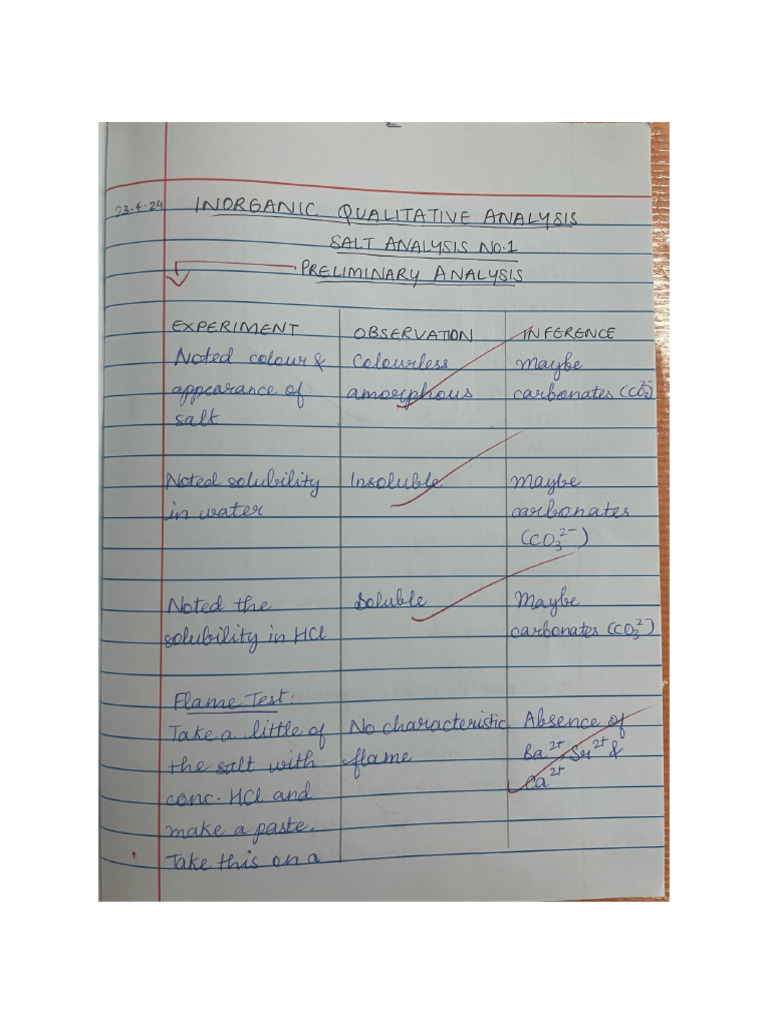 23.4.24
INORGANIC QUALITATIVE ANALYSIS
SALT ANALYSIS NO:1
PRELIMINARY ANALYSIS
EXPERIMENT OBSERVATION INFERENCE
Noted colour & Colourless Maybe
appearance of amorphous carbonates (CO₃²⁻)
salt
Noted solubility Insoluble Maybe
in water carbonates
(CO₃²⁻)
Noted the Soluble Maybe
solubility in HCl carbonates (CO₃²⁻)
Flame Test:
Take a little of No characteristic Absence of
the salt with flame Ba²⁺, Sr²⁺ &
conc. HCl and Ca²⁺
make a paste.
Take this on a